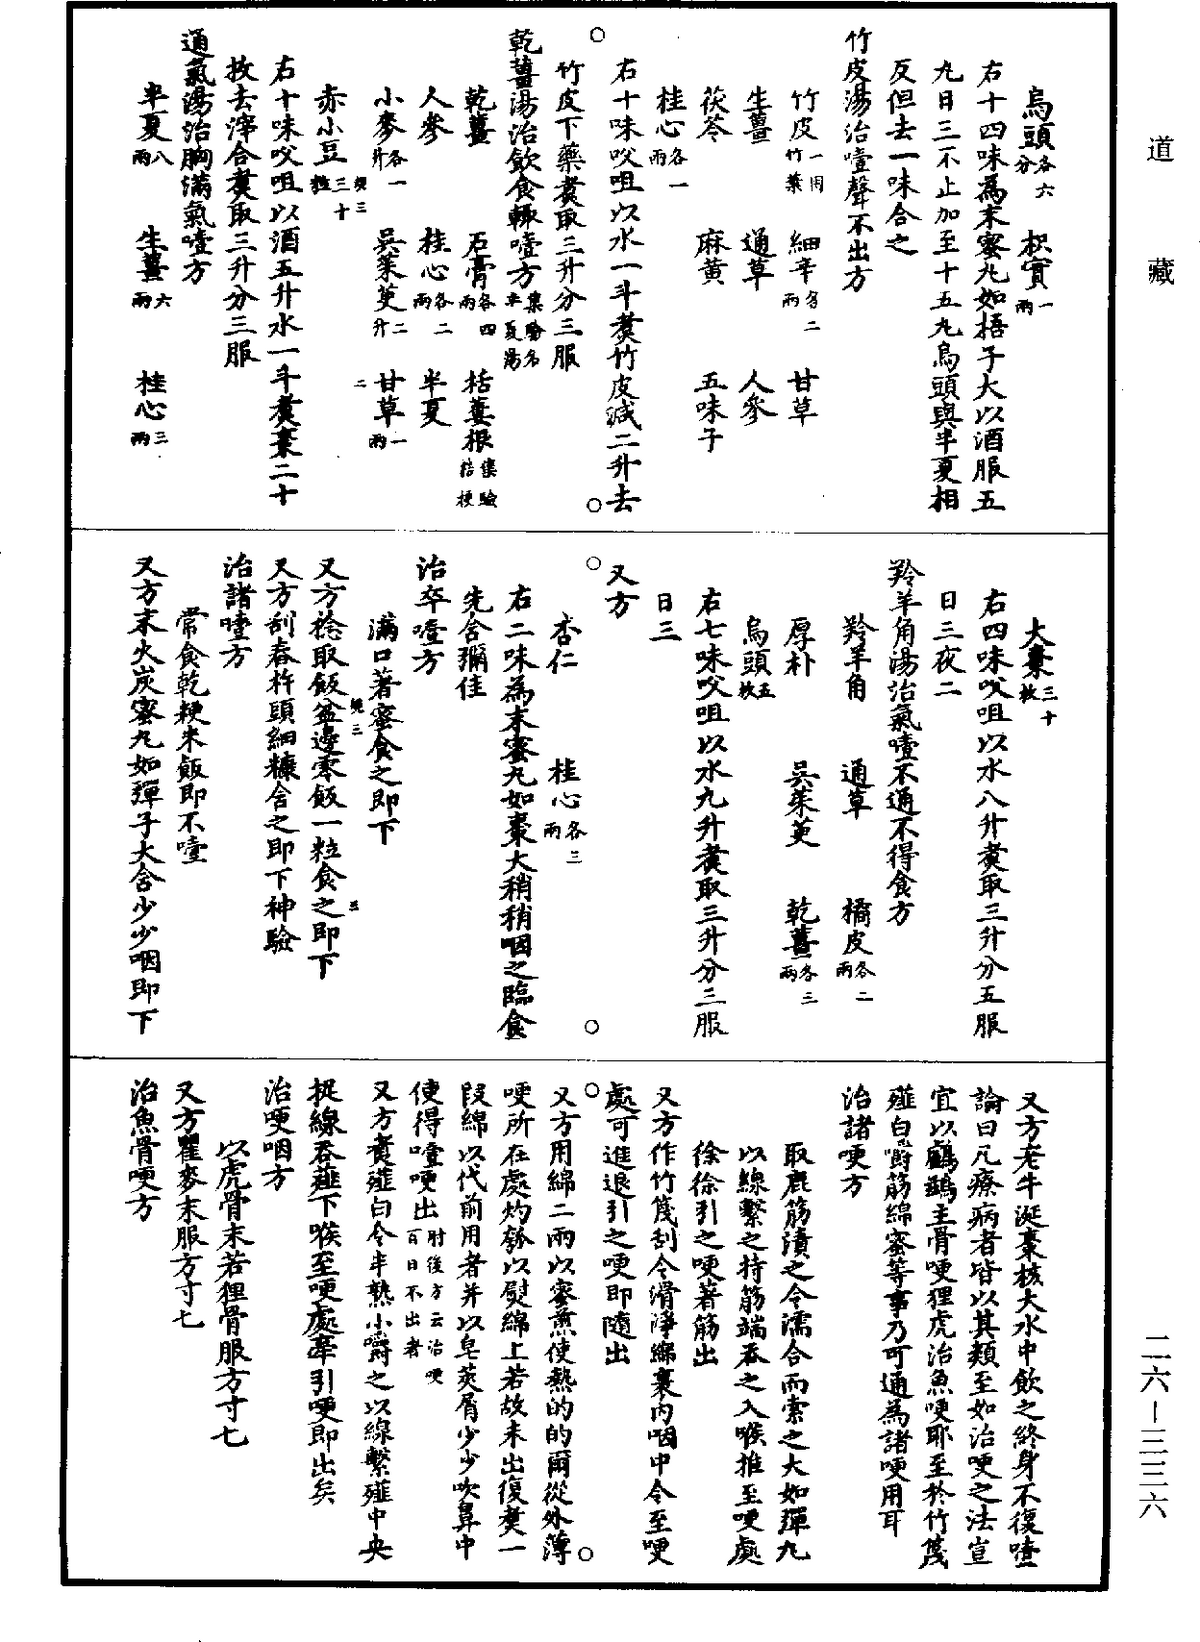 道藏
烏頭各六分　枳實一兩
右十四味為末蜜丸如梧子大以酒服五
丸日三不止加至十五丸烏頭與半夏相
反但去一味合之
竹皮湯治噎聲不出方
竹皮一用竹葉　細辛各二兩　甘草
生薑　通草　人參
茯苓　麻黃　五味子
桂心各一兩
右十味㕮咀以水一斗煑竹皮減二升去
竹皮下藥煑取三升分三服
乾薑湯治飲食輒噎方集驗名半夏湯
乾薑　石膏各四兩　栝蔞根集驗桔梗
人參　桂心各二兩　半夏
小麥各一升　吳茱萸二升　甘草一兩
赤小豆三十粒
右十味㕮咀以酒五升水一斗煑棗二十
枚去滓合煑取三升分三服
通氣湯治胸滿氣噎方
半夏八兩　生薑六兩　桂心三兩
噎三　二
大棗三十枚
右四味㕮咀以水八升煑取三升分五服
日三夜二
羚羊角湯治氣噎不通不得食方
羚羊角　通草　橘皮各二兩
厚朴　吳茱萸　乾薑各三兩
烏頭五枚
右七味㕮咀以水九升煑取三升分三服
日三
又方
杏仁　桂心各三兩
右二味為末蜜丸如棗大稍稍咽之臨食
先含彌佳
治卒噎方
滿口著蜜食之即下
又方捻取飯盆邊零飯一粒食之即下
又方刮舂杵頭細糠含之即下神驗
治諸噎方
常食乾粳米飯即不噎
又方末火炭蜜丸如彈子大含少少咽即下
三
又方老牛涎棗核大水中飲之終身不復噎
論曰凡療病者皆以其類至如治哽之法豈
宜以鸕鷀主骨哽狸虎治魚哽耶至於竹篾
薤白嚼筋綿蜜等事乃可通為諸哽用耳
治諸哽方
取鹿筋漬之令濡合而索之大如彈丸
以線繫之持筋端吞之入喉推至哽處
徐徐引之哽著筋出
又方作竹篾刮令滑淨綿裹內咽中令至哽
處可進退引之哽即隨出
又方用綿二兩以蜜煎使熱的的爾從外薄
哽所在處灼瓠以熨綿上若故未出復煑一
段綿以代前用者并以皂莢屑少少吹鼻中
使得嚏哽出肘後方云治哽百日不出者
又方煑薤白令半熟小嚼之以線繫薤中央
捉線吞薤下喉至哽處牽引哽即出矣
治哽咽方
以虎骨末若狸骨服方寸七
又方瞿麥末服方寸七
治魚骨哽方
二六-三三六